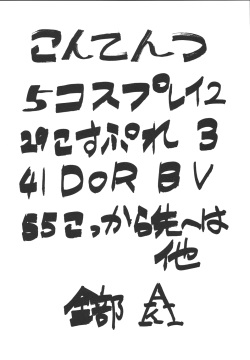 こんてんつ
5コスプレイ2
29こすぷれ 3
41 DoR B V
55こっから先へは
他
全部 AKI